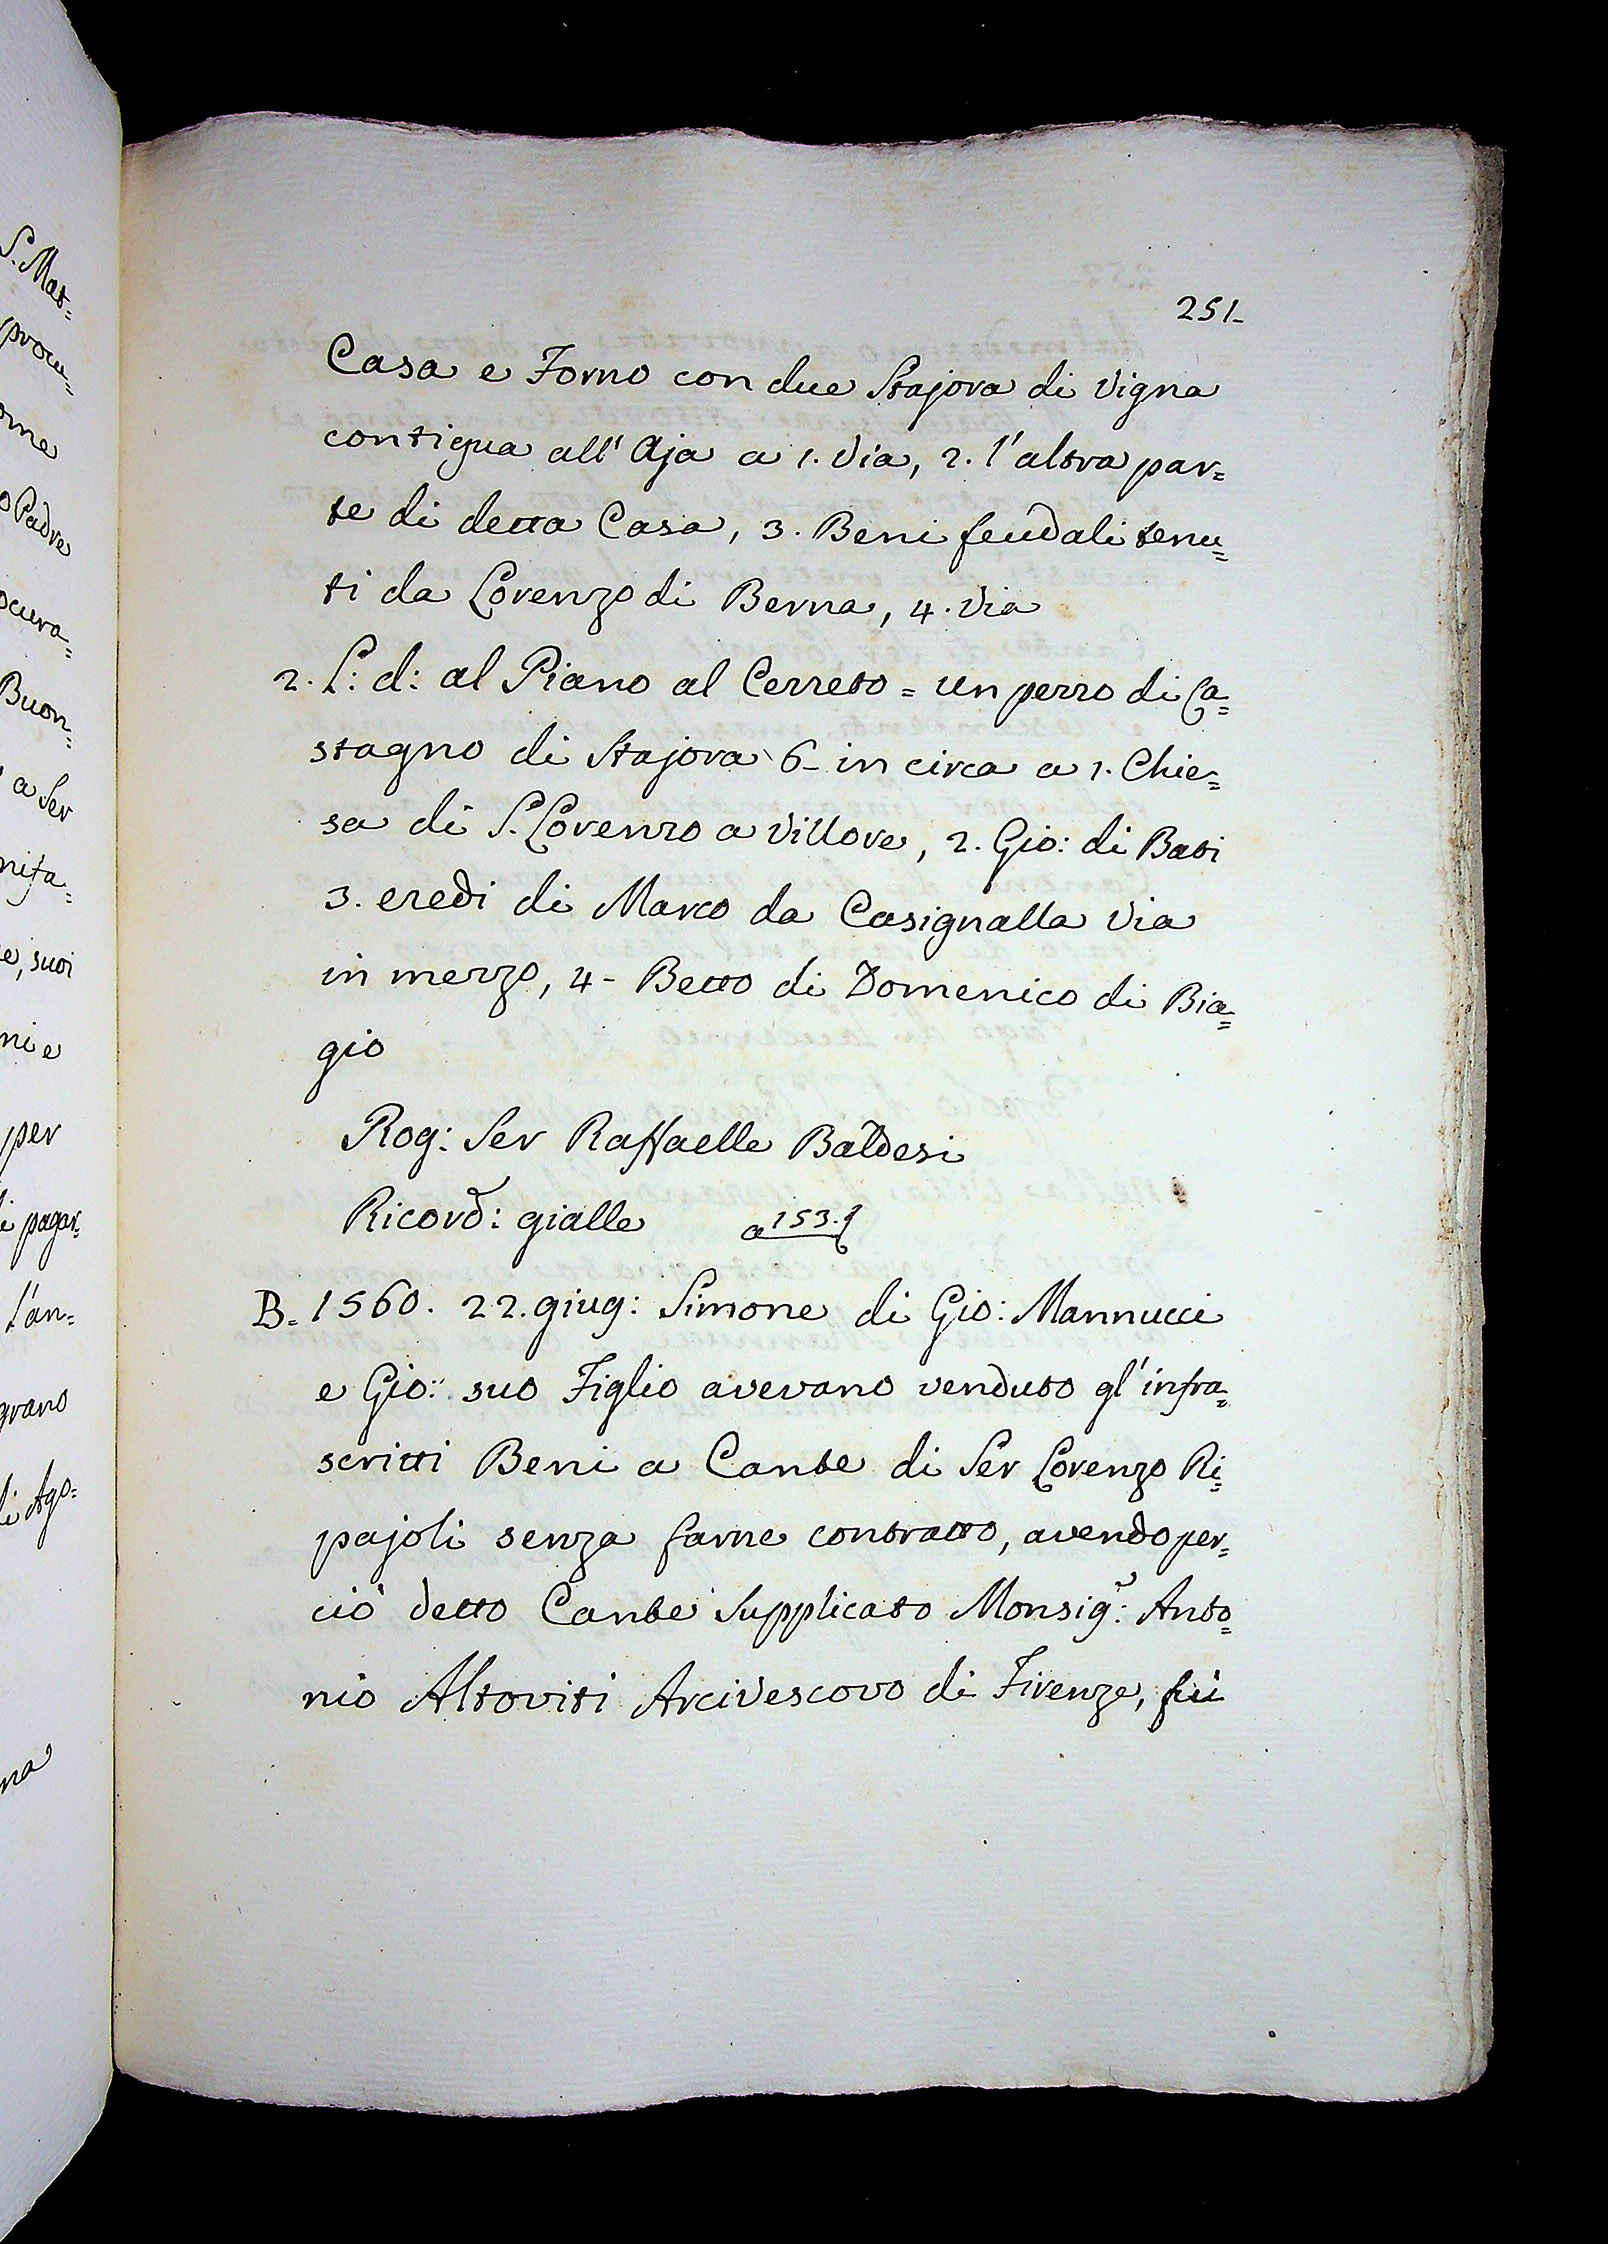 S. Mat=
procu=
ome
o Padre
ocura=
Buon=
a Ser
nifa=
e, suoi
ni e
per
i pagar=
l'an=
grano
li Ago=
na
251-
Casa e Forno con due Stajora di Vigna
contigua all' Aja a 1. Via, 2. l'altra par=
te di detta Casa, 3. Beni feudali tenu=
ti da Lorenzo di Berna, 4. Via
2. L: d: al Piano al Cerreto = Un pezzo di Ca=
stagno di Stajora 6- in circa a 1. Chie=
sa di S. Lorenzo a Villore, 2. Gio: di Bati
3. eredi di Marco da Casignalla Via
in mezzo, 4- Betto di Domenico di Bia=
gio
Rog: Ser Raffaelle Baldesi
Ricord: gialle a 153.
B= 1560. 22. giug: Simone di Gio: Mannucci
e Gio: suo Figlio avevano venduto gl'infra=
scritti Beni a Cante di Ser Lorenzo Ri=
pajoli senza farne contratto, avendo per=
ciò detto Cante Supplicato Monsig: Anto=
nio Altoviti Arcivescovo di Firenze, fù